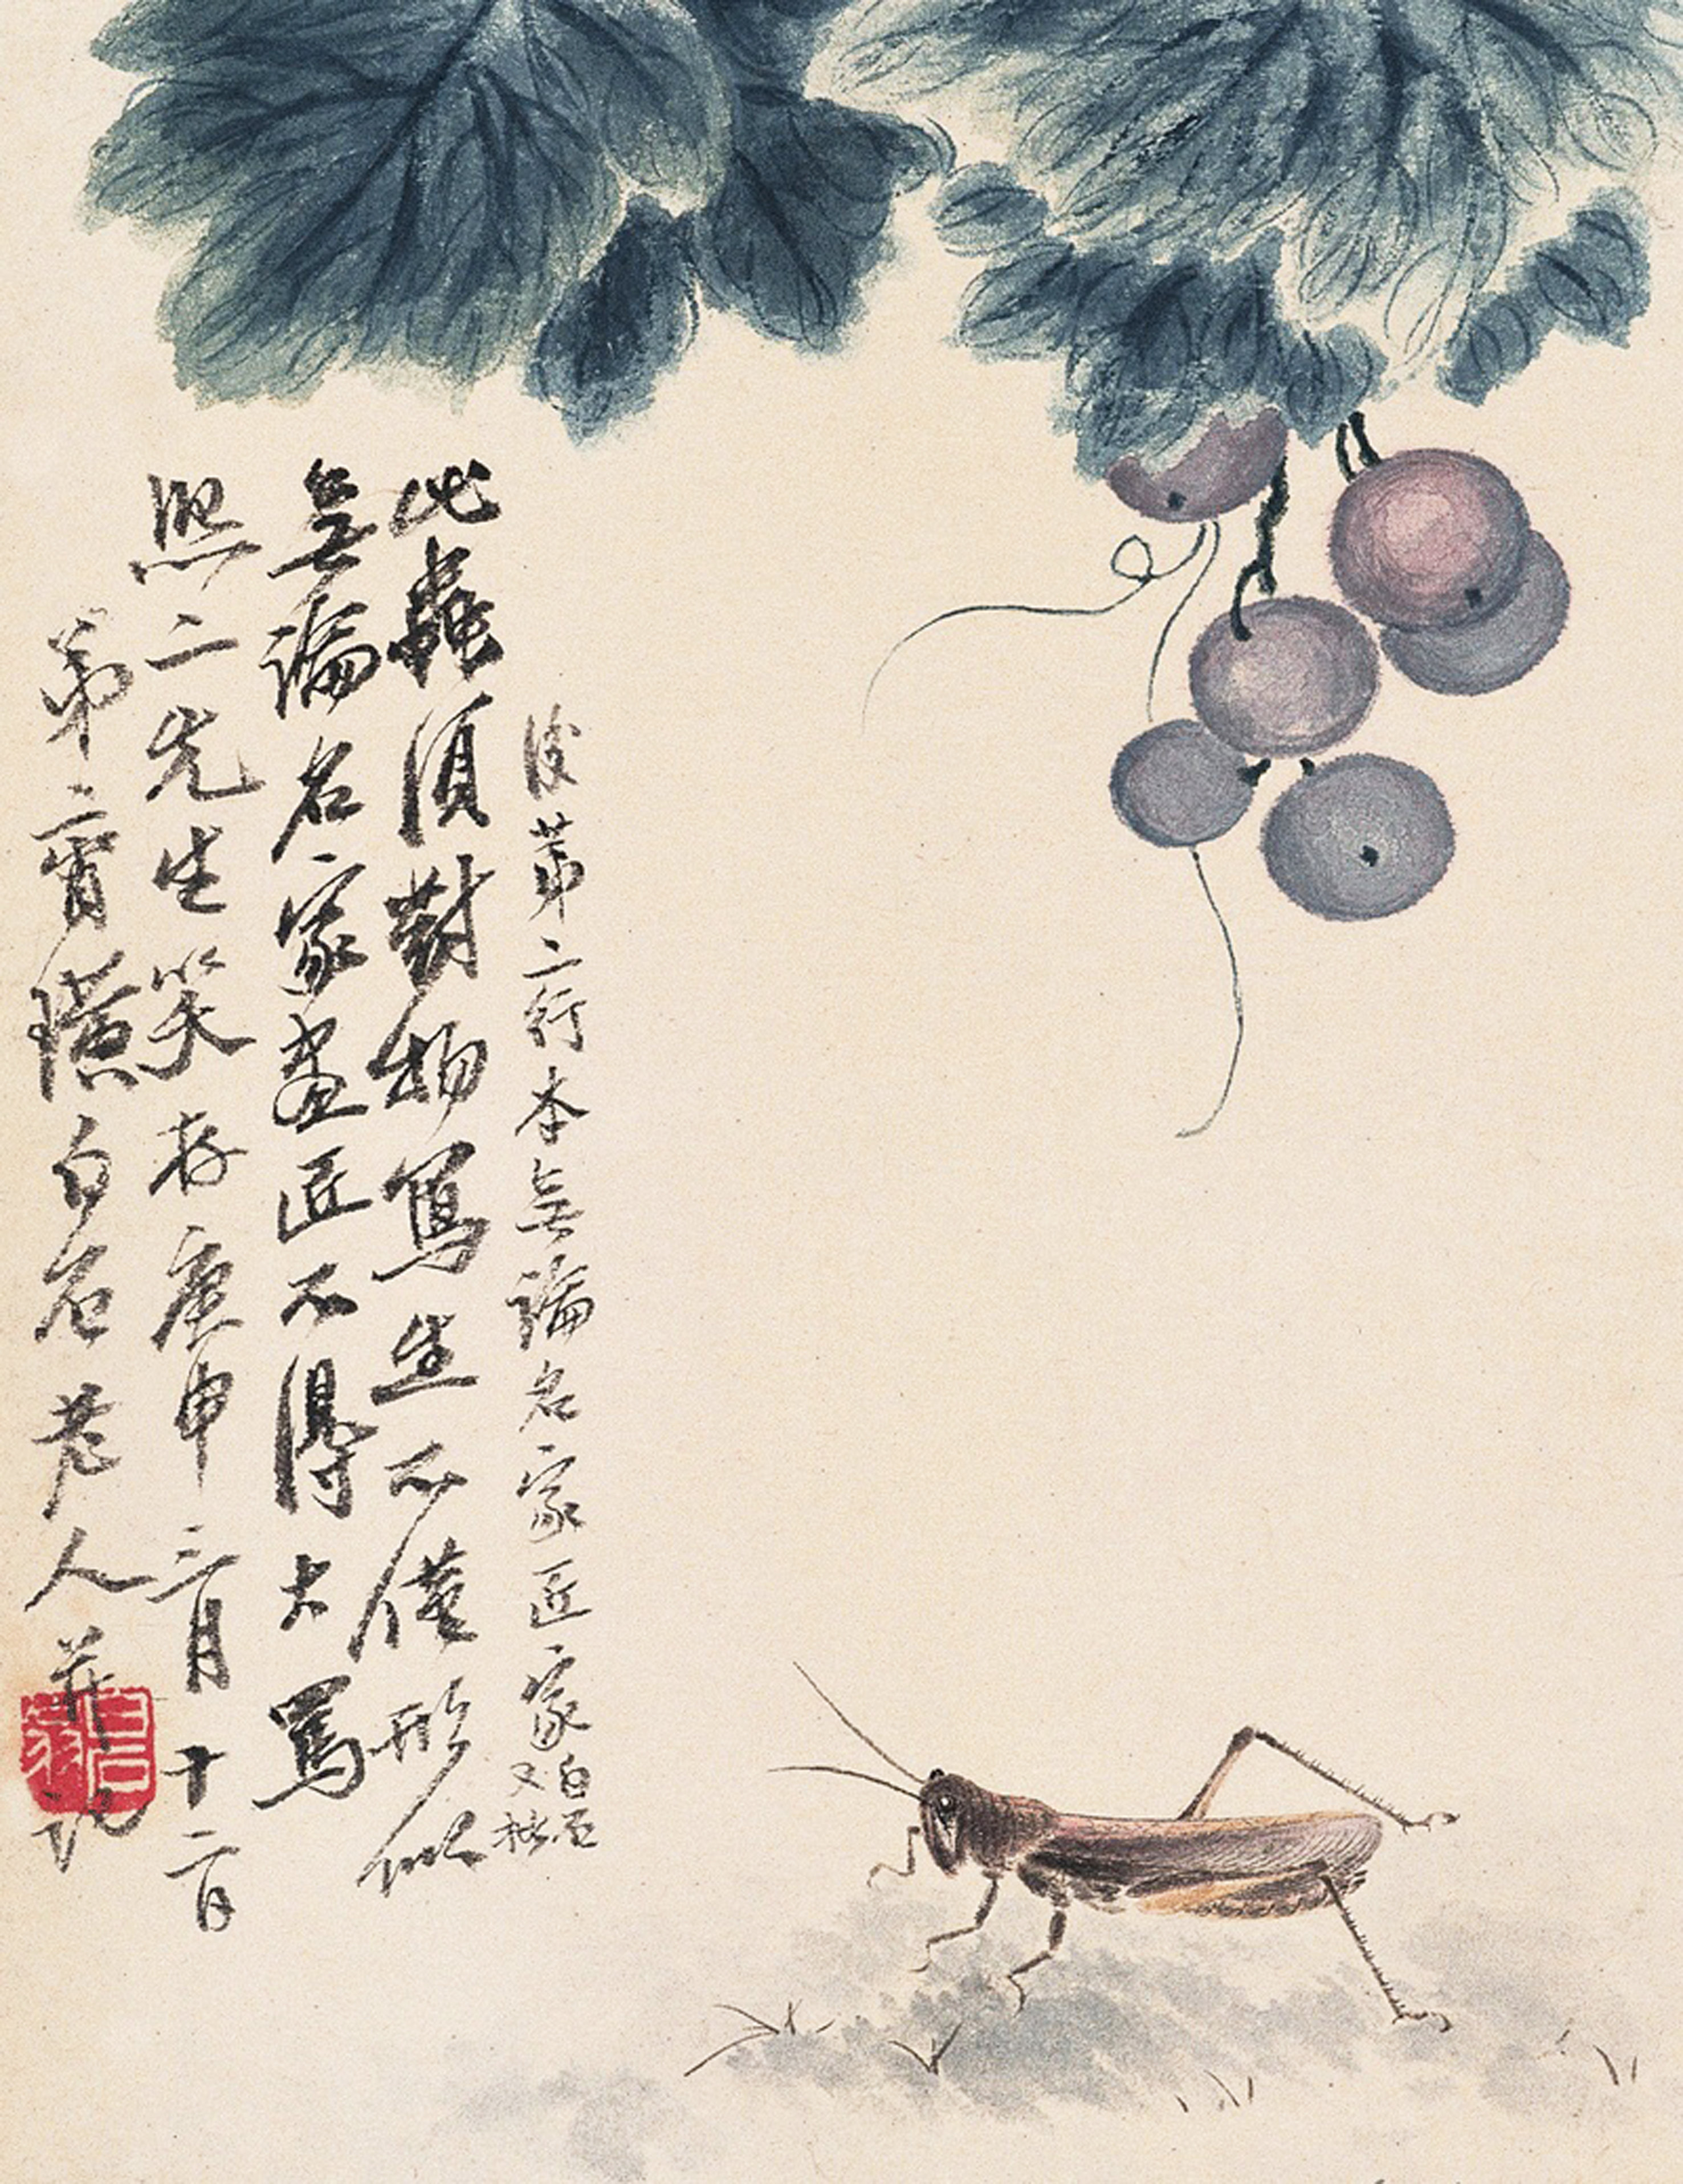 後第二行本無論名家匠家白石又批
此蟲須對物寫生不僅形似
無論名家畫匠不得大罵
熙二先生笑存庚申三月十二日
弟齊璜白石老人並記
白石翁